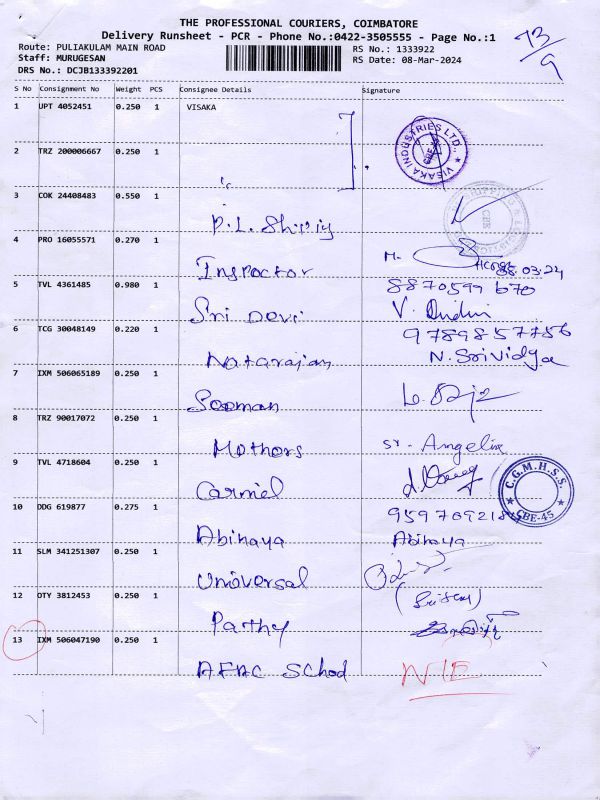 THE PROFESSIONAL COURIERS, COIMBATORE
Delivery Runsheet - PCR - Phone No.:0422-3505555 - Page No.:1
73/9
Route: PULIAKULAM MAIN ROAD
RS No.: 1333922
Staff: MURUGESAN
RS Date: 08-Mar-2024
DRS No.: DCJB133392201
S No Consignment No Weight PCS Consignee Details Signature
1 UPT 4052451 0.250 1 VISAKA
VISAKA INDUSTRIES LTD., CBE-45
2 TRZ 200006667 0.250 1
3 COK 24408483 0.550 1
P.L. Shipiy
CBE
4 PRO 16055571 0.270 1
Inspector
M.
08.03.24
5 TVL 4361485 0.980 1
8870599670
Sri Devi
6 TCG 30048149 0.220 1
9789857756
Natarajan
N. Srividya
7 IXM 506065189 0.250 1
Seeman
8 TRZ 90017072 0.250 1
Mothers
Sr. Angelin
9 TVL 4718604 0.250 1
Carmel
C.G.M.H.S.S. CBE-45
10 DDG 619877 0.275 1
Abinaya
Abinaya
11 SLM 341251307 0.250 1
Universal
12 OTY 3812453 0.250 1
Parthy
13 IXM 506047190 0.250 1
AFAC School
N/E